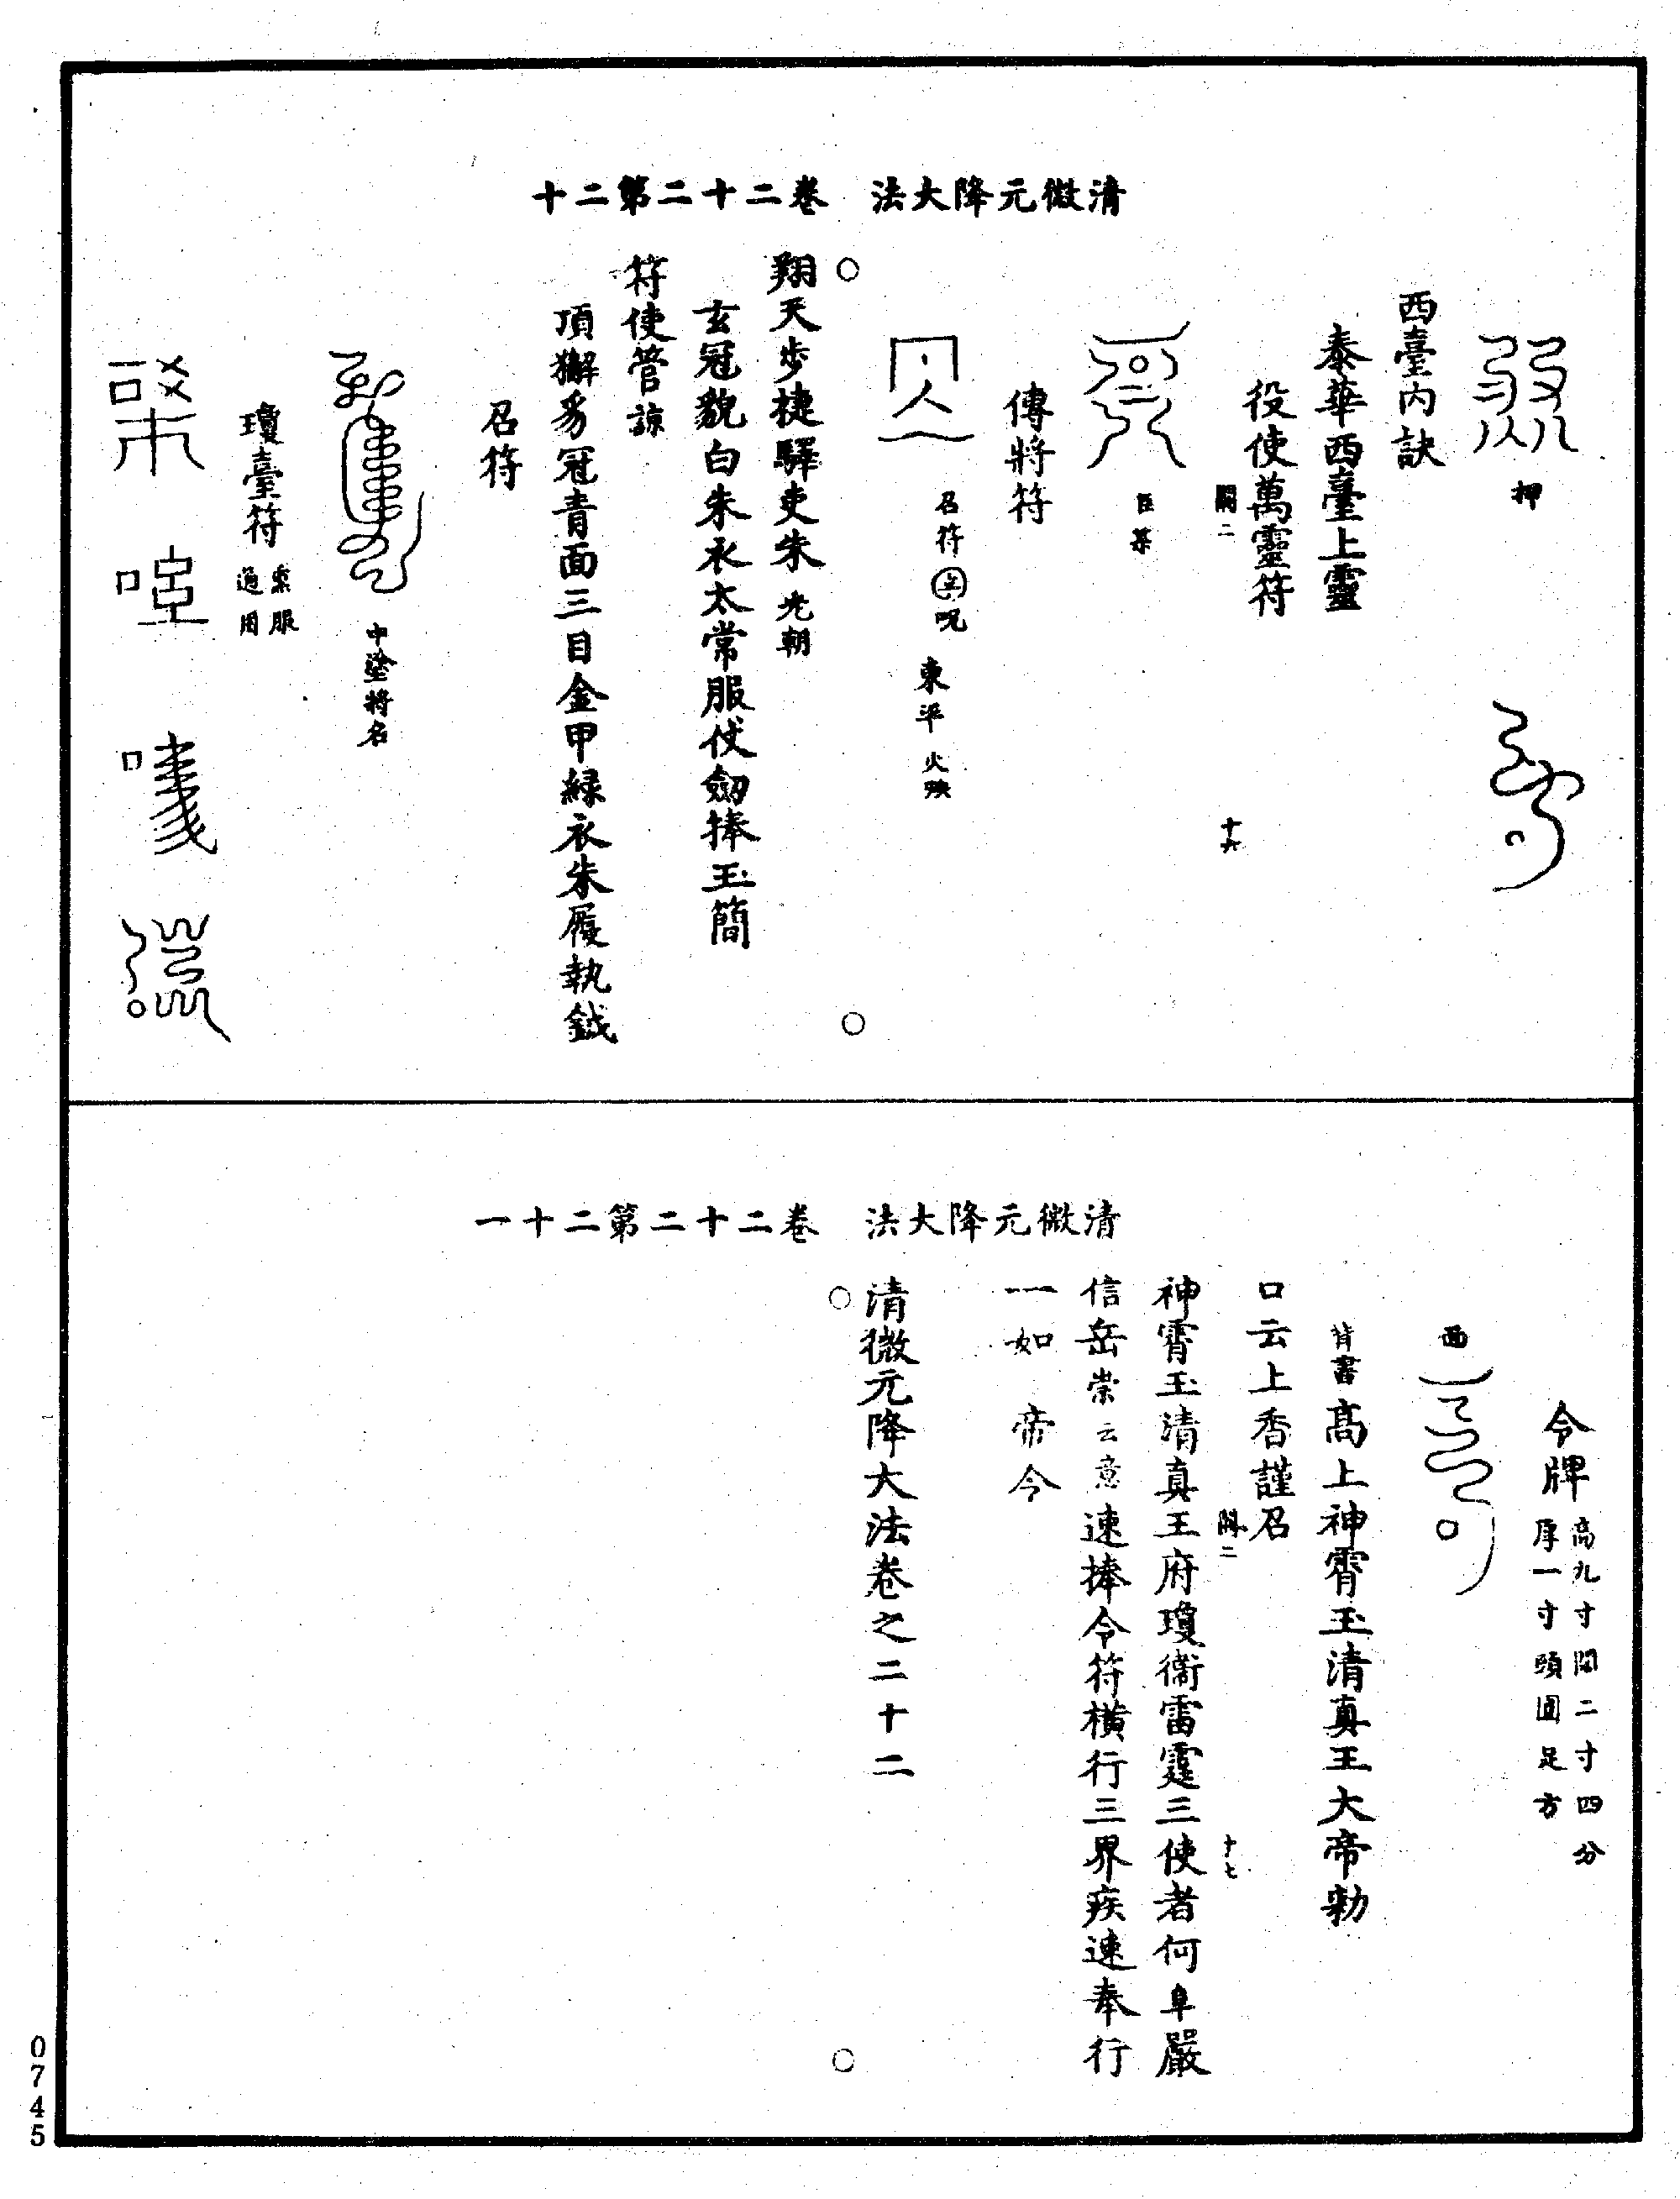 清微元降大法　卷二十二第二十
押
西臺內訣
泰華西臺上靈
役使萬靈符
十六
臣某
傳將符
召符　呪　東平
翔天步捷驛吏朱光朝
玄冠貌白朱衣太常服仗劒捧玉簡
符使管諒
頂獬豸冠青面三目金甲綠衣朱履執鉞
召符
中塗將名
瓊臺符
服
通用
清微元降大法　卷二十二第二十一
令牌高九寸闊二寸四分
厚一寸頭圓足方
面
背書高上神霄玉清真王大帝勑
口云上香謹召
十七
神霄玉清真王府瓊衛雷霆三使者何阜嚴
信岳崇云意速捧令符橫行三界疾速奉行
一如　帝令
清微元降大法卷之二十二
0745